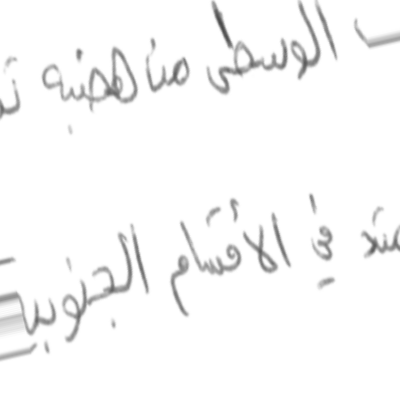 الوسطى من هضبة
في الأقسام الجنوبية